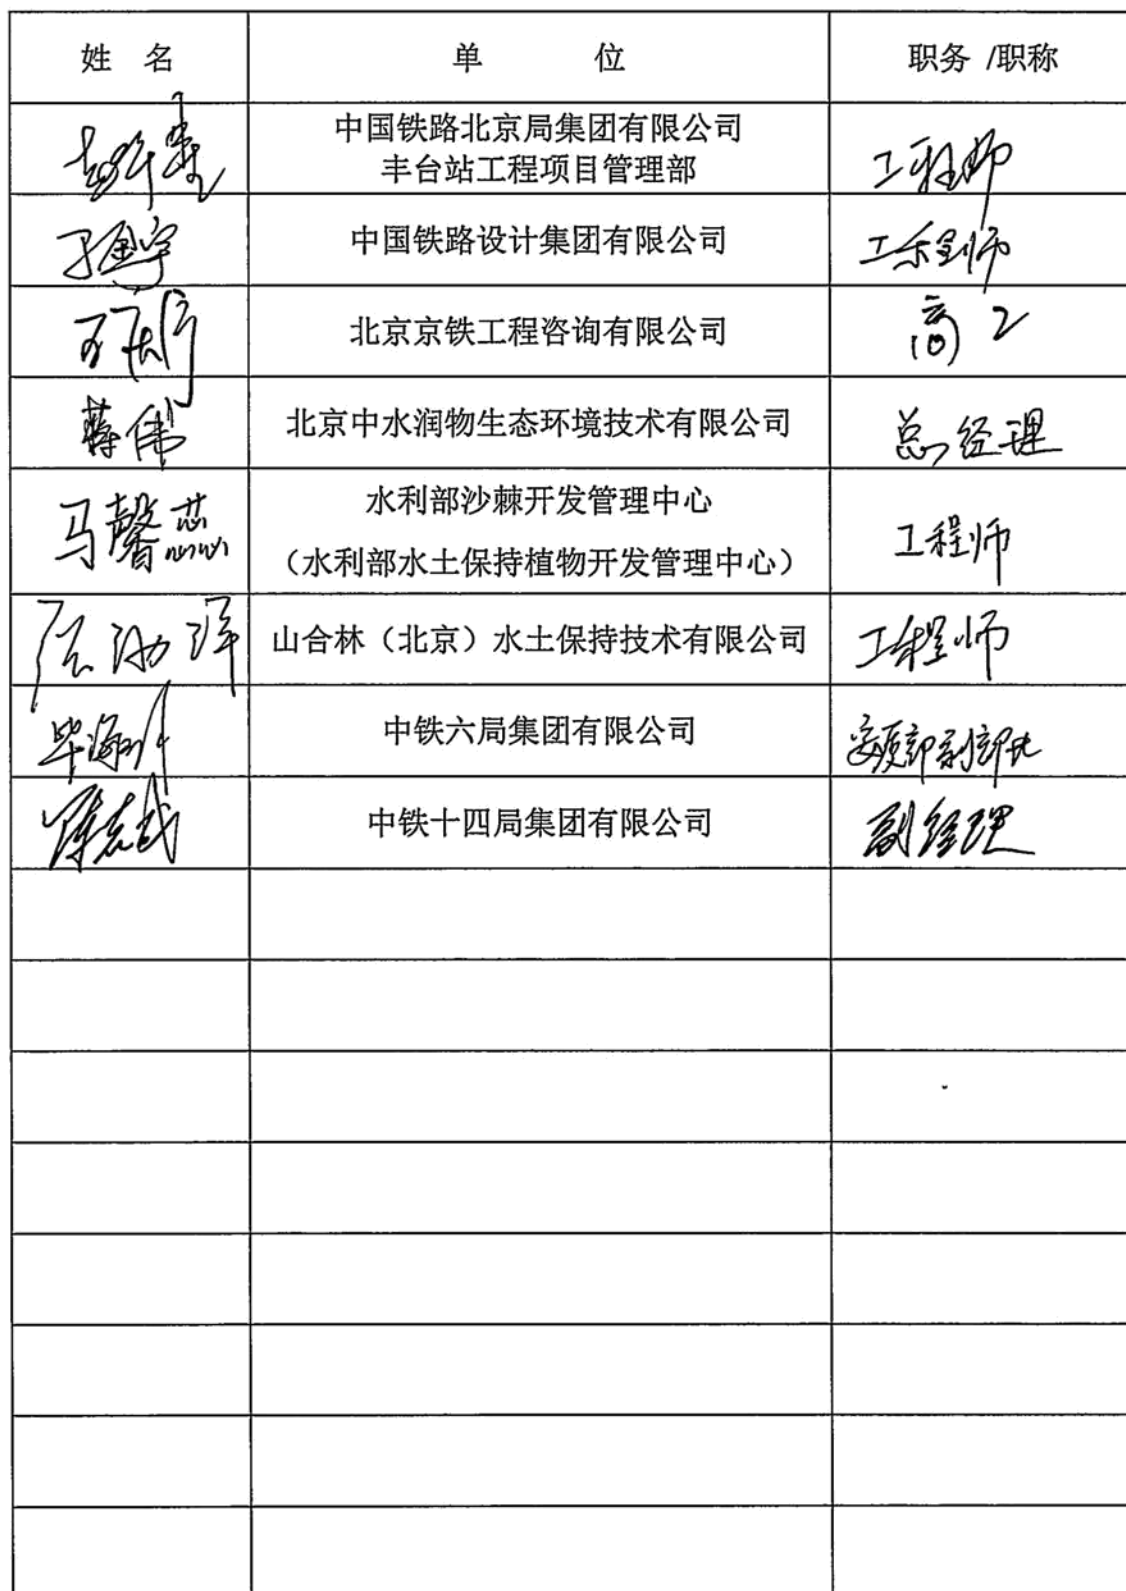 姓 名 单 位 职务 /职称
中国铁路北京局集团有限公司
丰台站工程项目管理部
工程师
中国铁路设计集团有限公司
工程师
北京京铁工程咨询有限公司
高工
蒋伟 北京中水润物生态环境技术有限公司 总经理
马馨蕊 水利部沙棘开发管理中心
(水利部水土保持植物开发管理中心)
工程师
山合林（北京）水土保持技术有限公司 工程师
中铁六局集团有限公司 安质部副部长
中铁十四局集团有限公司 副经理